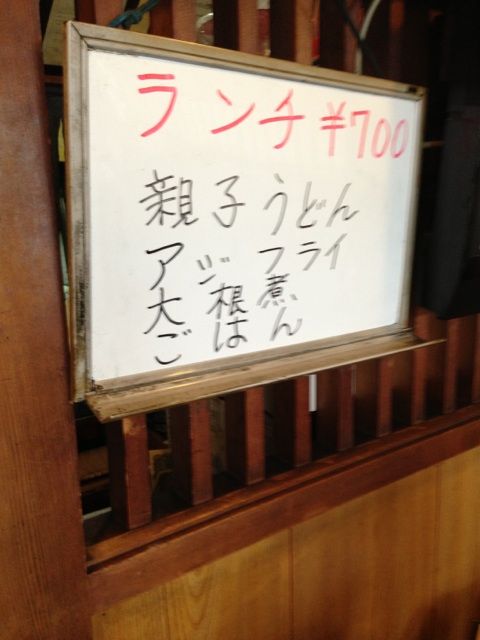 ランチ ¥700
親子うどん
アジフライ
大根煮
ごはん